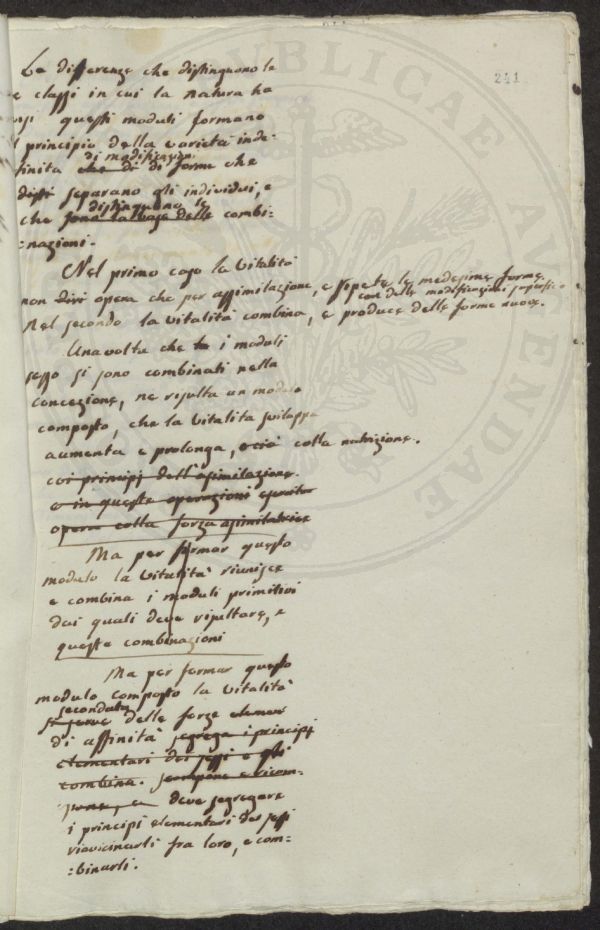 241
Le differenze che distinguono le
e classi in cui la natura ha
questi moduli formano
principio della varietà inde-
di modificazion
finita che di di forme che
separano gli individui, e
distinguono le
che sono la base delle combi-
:nazioni.
Nel primo caso la vitalità
non opera che per assimilazione, e ripete le medesime forme
con delle modificazioni
Nel secondo la vitalità combina, e produce delle forme nuove.
Una volta che i moduli
sesso si sono combinati nella
concezione, ne risulta un modulo
composto, che la vitalità sviluppa
aumenta e prolonga, e ciò colla nutrizione.
coi principj dell'assimilazione.
e in queste operazioni
opera colla forza assimilatrice
Ma per formar questo
modulo la vitalità riunisce
e combina i moduli primitivi
dai quali deve risultare, e
queste combinazioni
Ma per formar questo
modulo composto la vitalità
secondata
si serve delle forze elemen
di affinità segrega i principj
elementari dei sessi e gli
combina. scompone e ricom-
pone, e deve segregare
i principj elementari dei sessi
riavvicinarli fra loro, e com-
:binarli.
PUBLICAE